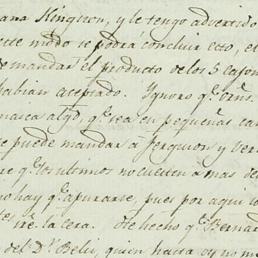 para Kingston, y le tengo advertido
este modo se podrá concluir esto, el
demandar el producto de los 5 cajon
habian aceptado. Ignoro qe. Vms.
algo, qe. sea en pequeñas can
se puede mandar á Ferguson y Ver
re qe. los ultimos no cuesten a mas de
no hay qe. apurarse, pues por aqui
iré la cera. He hecho qe. Bernar
del Dr. Beliu, quien hasta oy no m